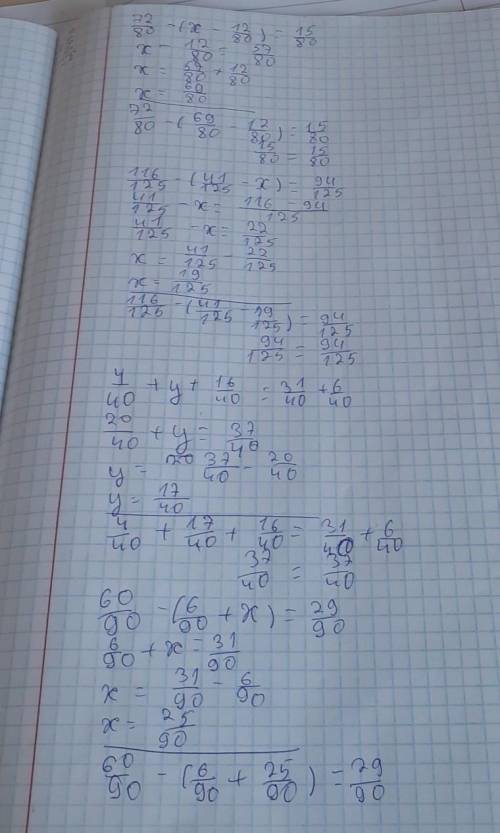 72/80 - (x - 12/80) = 15/80
x - 12/80 = 57/80
x = 57/80 + 12/80
x = 69/80
72/80 - (69/80 - 12/80) = 15/80
15/80 = 15/80
116/125 - (41/125 - x) = 94/125
41/125 - x = (116 - 94)/125
41/125 - x = 22/125
x = 41/125 - 22/125
x = 19/125
116/125 - (41/125 - 19/125) = 94/125
94/125 = 94/125
4/40 + y + 16/40 = 31/40 + 6/40
20/40 + y = 37/40
y = 37/40 - 20/40
y = 17/40
4/40 + 17/40 + 16/40 = 31/40 + 6/40
37/40 = 37/40
60/90 - (6/90 + x) = 29/90
6/90 + x = 31/90
x = 31/90 - 6/90
x = 25/90
60/90 - (6/90 + 25/90) = 29/90